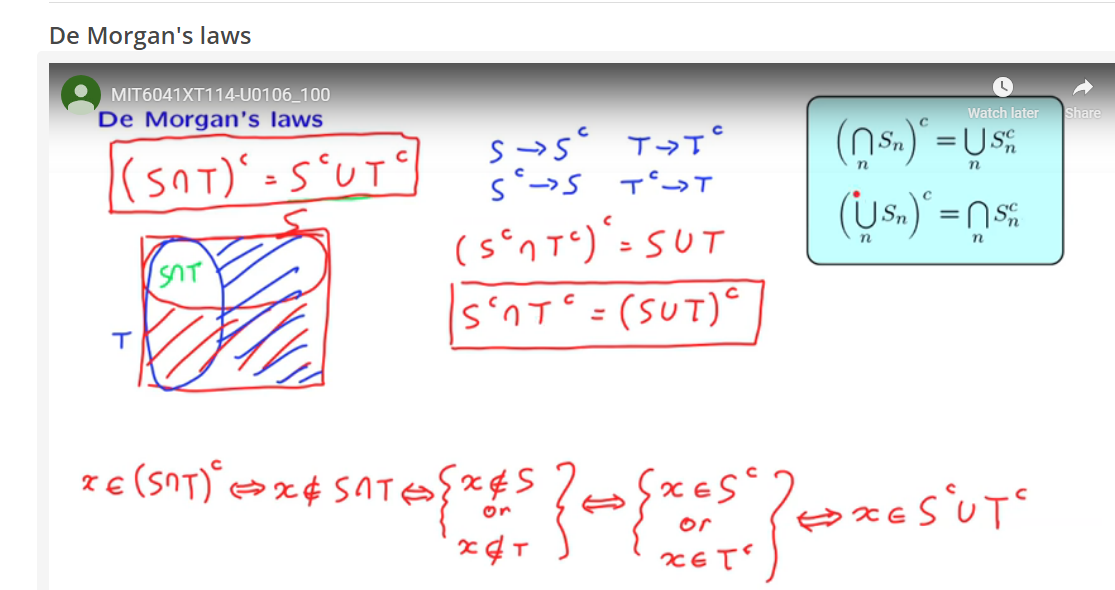 De Morgan's laws
MIT6041XT114-U0106_100
Watch later
Share
De Morgan's laws
(S∩T)ᶜ = Sᶜ∪Tᶜ
S → Sᶜ T → Tᶜ
Sᶜ → S Tᶜ → T
(Sᶜ∩Tᶜ)ᶜ = S∪T
Sᶜ∩Tᶜ = (S∪T)ᶜ
(⋂ₙ Sₙ)ᶜ = ⋃ₙ Sₙᶜ
(⋃ₙ Sₙ)ᶜ = ⋂ₙ Sₙᶜ
S
S∩T
T
x ∈ (S∩T)ᶜ ⇔ x ∉ S∩T ⇔ {x ∉ S or x ∉ T} ⇔ {x ∈ Sᶜ or x ∈ Tᶜ} ⇔ x ∈ Sᶜ∪Tᶜ